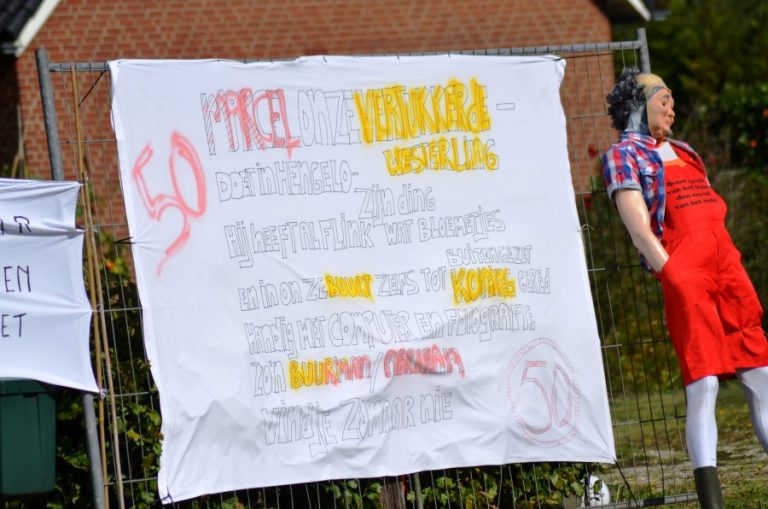 MARCEL ONZE VERTUKKERDE-
WESTERLING
50
DOET IN HENGELO-
ZIJN DING
HIJ HEEFT AL FLINK WAT BLOEMETJES
BUITENGEZET
EN IN ONZE BUURT ZELFS TOT KONING GERED
HANDIG MET COMPUTER EN FOTOGRAFIE
ZO'N BUURMAN/ABRAHAM
VIND JE ZOMAAR NIE
50
R
EN
ET
van het
dan
van het